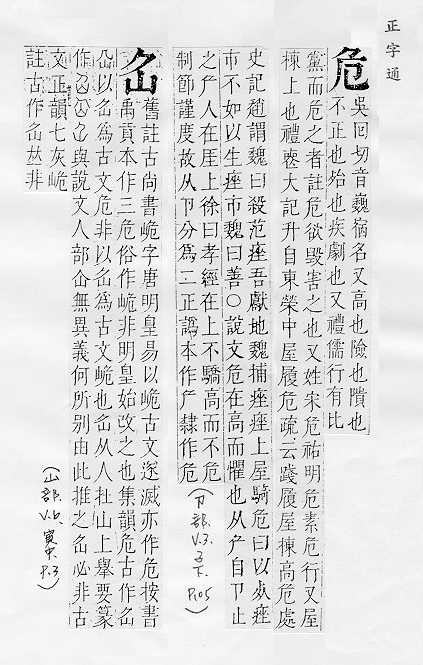 正字通
危
吳回切音巍宿名又高也險也隤也
不正也殆也疾劇也又禮儒行有比
黨而危之者註危欲毀害之也又姓宋危祐明危素危行又屋
棟上也禮喪大記升自東榮中屋履危疏云踐履屋棟高危處
史記趙謂魏曰殺范痤吾獻地魏捕痤痤上屋騎危曰以死痤
市不如以生痤市魏曰善○說文危在高而懼也从厃自卪止
之厃人在厓上徐曰孝經在上不驕高而不危
制節謹度故从卪分爲二正譌本作厃隸作危
(卩部.V.3.子下.P.05)
仚
舊註古尚書峗字唐明皇易以峗古文遂滅亦作危按書
禹貢本作三危俗作峗非明皇始改之也集韻危古作仚
仚以仚爲古文危非以仚爲古文峗也仚从人在山上舉要篆
作與說文人部仚無異義何所別由此推之仚必非古
文正韻七灰峗
註古作仚𠀤非
(山部.V.6.寅中.P.3)